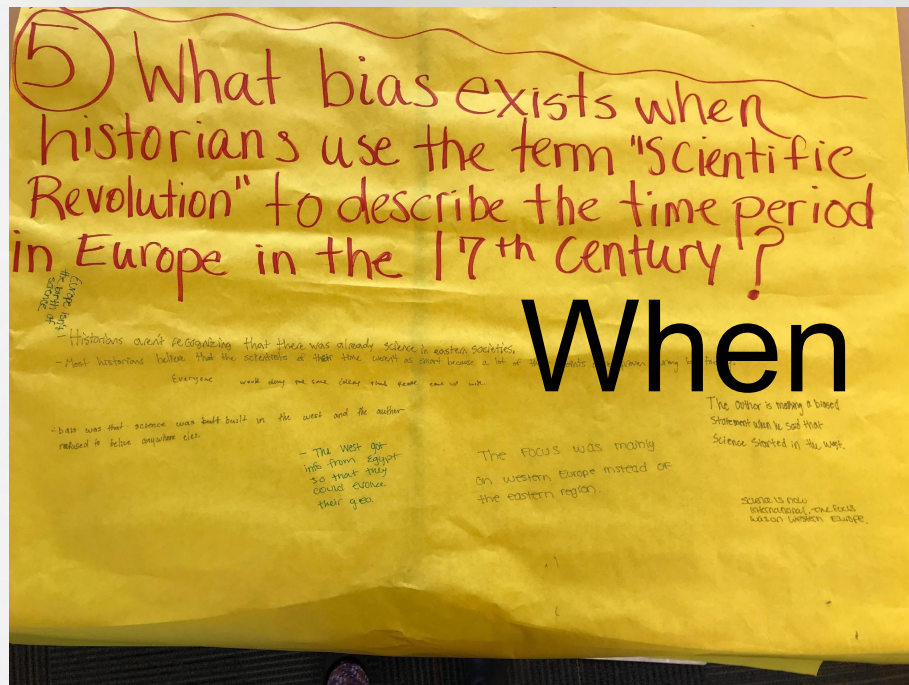 5 What bias exists when
historians use the term "Scientific
Revolution" to describe the time period
in Europe in the 17th Century?
Europe isn't
the birth of
science.
When
- Historians aren't recognizing that there was already science in eastern societies.
- Most historians believe that the scientists of their time weren't as smart because a lot of
Everyone
- bias was that science was built in the west and the author
refused to belive anywhere eles.
- The West got
info from Egypt
so that they
could evolve
their
The FOCUS was mainly
on western Europe instead of
the eastern region.
The author is making a biased
Statement when he said that
Science Started in the west.
Science is now
international. The focus
was on Western Europe.